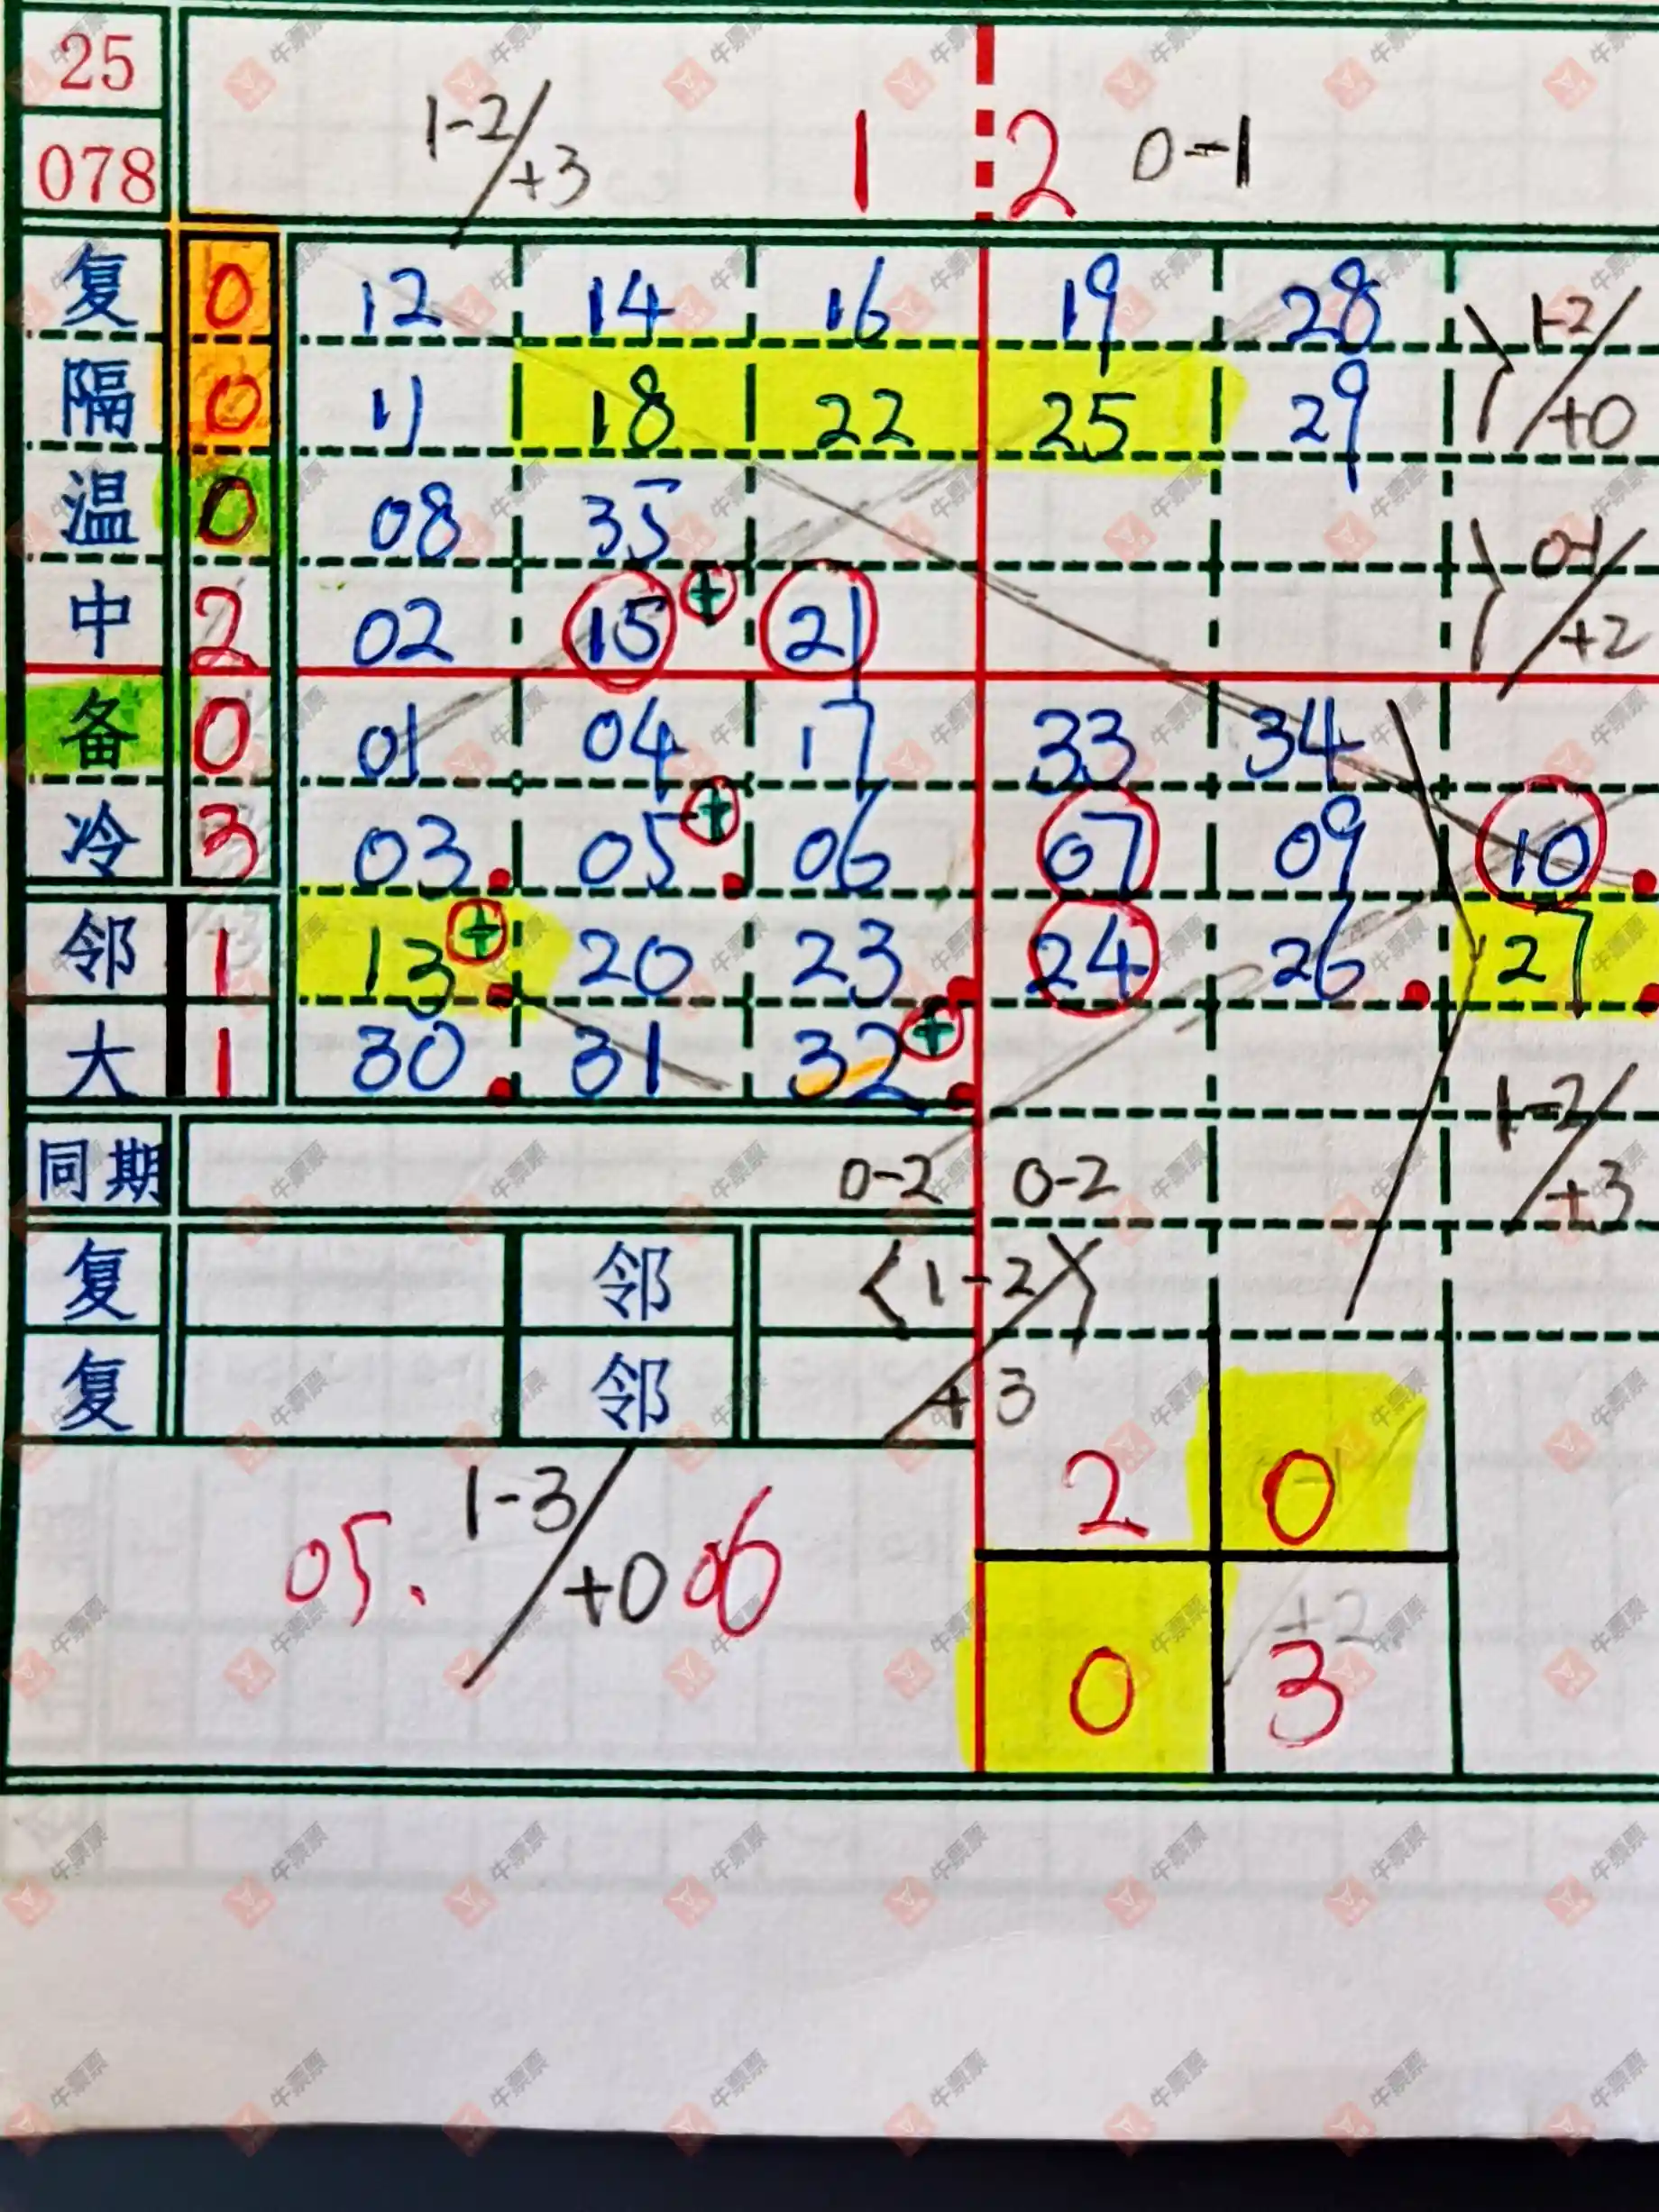 25
078
1-2/+3 1 2 0-1
复 0 12 14 16 19 28 1-2/+0
隔 0 11 18 22 25 29
温 0 08 35 0-1/+2
中 2 02 15 + 21
备 0 01 04 17 33 34
冷 3 03 05 + 06 07 09 10
邻 1 13 + 20 23 24 26 27
大 1 30 31 32 + 1-2/+3
同期 0-2 0-2
复 邻 <1-2/>
复 邻 +3
2 0
05. 1-3/+0 06
+2
0 3
牛票票